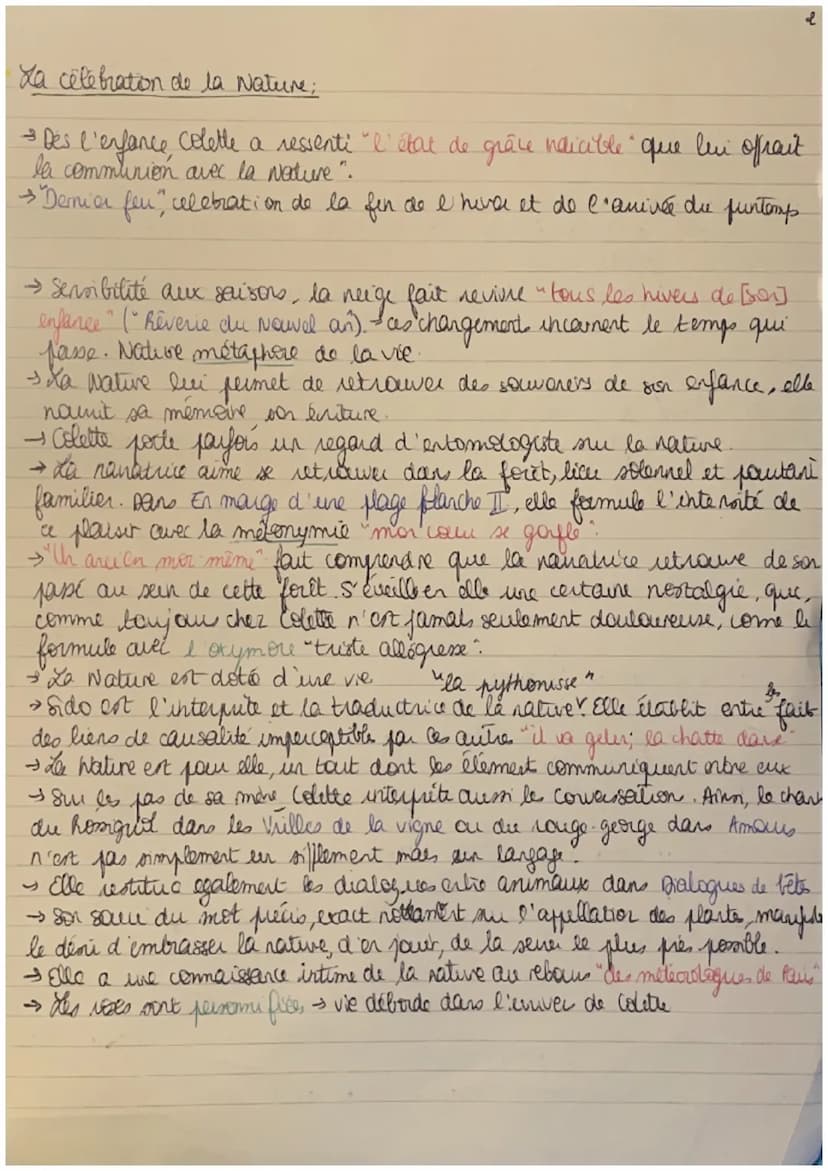 2
La célébration de la Nature;
→ Dès l'enfance, Colette a ressenti "l'état de grâce indicible" que lui offrait
la communion avec la Nature".
→ "Dernier feu", celebration de la fin de l'hiver et de l'arrivée du printemps
→ Sensibilité aux saisons, la neige fait revivre "tous les hivers de [son]
enfance" ("Rêverie du Nouvel an). → ces changements incarnent le temps qui
passe. Nature métaphore de la vie.
→ La Nature lui permet de retrouver des souvenirs de son enfance, elle
nourrit sa mémoire, son écriture.
→ Colette porte parfois un regard d'entomologiste sur la nature.
→ La narratrice aime se retrouver dans la forêt, lieu solennel et pourtant
familier. Dans En marge d'une plage blanche II, elle formule l'intensité de
ce plaisir avec la métonymie "mon cœur se gonfle".
→ "Un ancien moi-même" fait comprendre que la narratrice retrouve de son
passé au sein de cette forêt. S'éveille en elle une certaine nostalgie, que,
comme toujours chez Colette n'est jamais seulement douloureuse, come le
formule avec l'oxymore "triste allégresse".
→ La Nature est doté d'une vie
"la pythonisse"
→ Sido est l'interprète et la traductrice de la nature. Elle établit entre les faits
des liens de causalité imperceptible par les autres "il va geler; la chatte danse"
→ La Nature est pour elle, un tout dont les élément communiquent entre eux
→ Sur les pas de sa mère Colette interprète aussi les conversation. Ainsi, le chant
du Rossignol dans les Vrilles de la vigne ou du rouge-gorge dans Amours
n'est pas simplement un sifflement mais un langage.
→ Elle restitue egalement les dialogues entre animaux dans Dialogues de bêtes
→ Son souci du mot précis, exact notamment sur l'appellation des plantes, manifeste
le désir d'embrasser la nature, d'en jouir, de la sentir le plus près possible.
→ Elle a une connaissance intime de la nature au rebours "des météorologues de Paris"
→ Les roses sont personnifiées → vie déborde dans l'univers de Colette